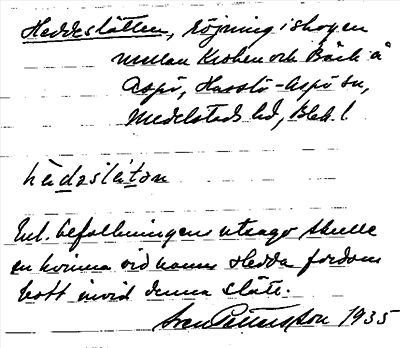 Heddeslätten, röjning i skogen
mellan Kroken och Bäck å
Aspö, Hasslö-Aspö sn,
Medelstads hd, Blek. l.
hèdaslǽtǝn
Enl. befolkningens utsago skulle
en kvinna vid namn Hedda fordom
bott invid denna slätt.
Sven Petersson 1935